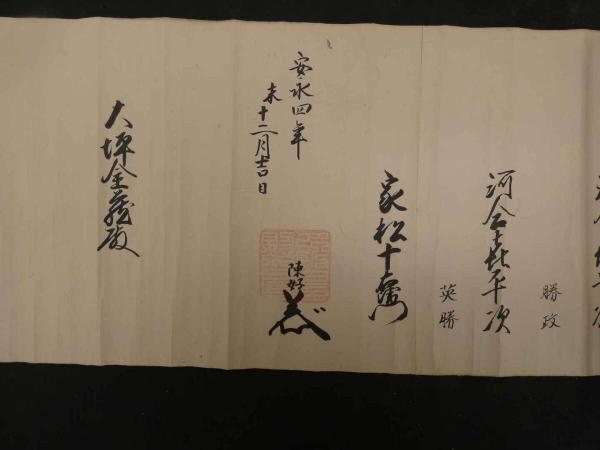 勝政
河合喜平次
英勝
家松十衛門
陳好
安永四年
未十二月吉日
大坪金蔵殿